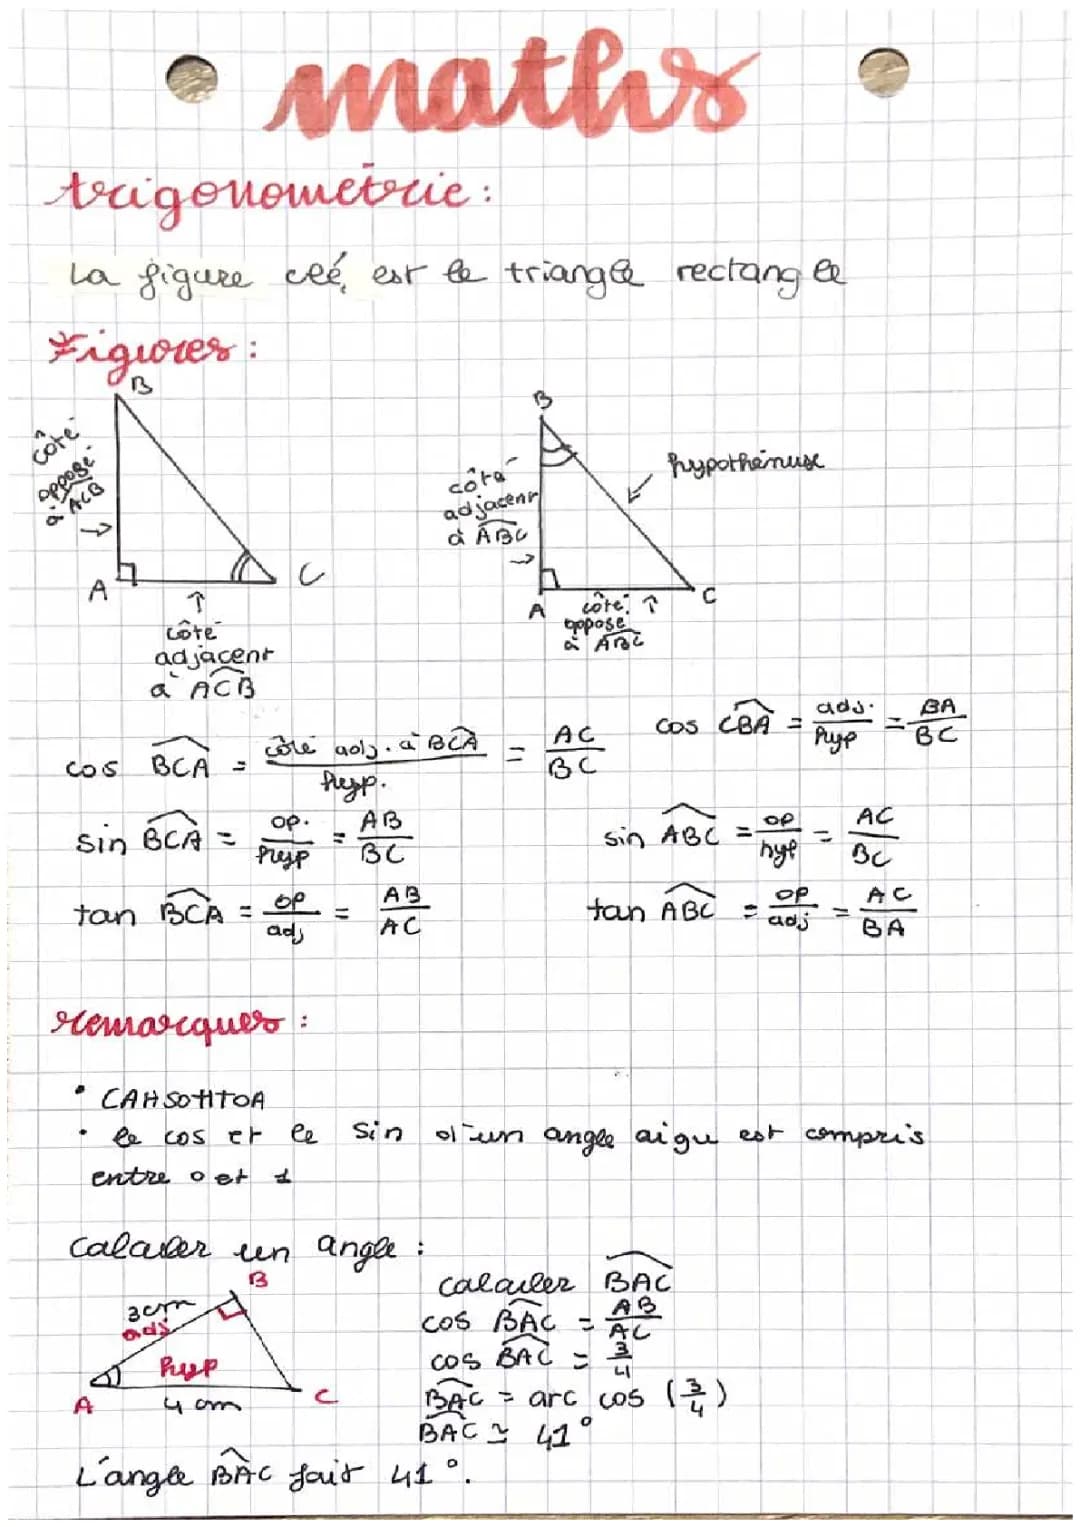 maths
trigonométrie :
La figure clé, est le triangle rectangle
Figures :
B
côté
opposé
à ACB
→
A
C
↑
côté
adjacent
à ACB
B
hypothénuse
côté
adjacent
à ABC
→
A
C
côté ↑
opposé
à ABC
cos BCA = côté adj. à BCA / hyp. = AC / BC
cos CBA = adj. / hyp = BA / BC
sin BCA = op. / hyp = AB / BC
sin ABC = op / hyp = AC / BC
tan BCA = op / adj = AB / AC
tan ABC = op / adj = AC / BA
remarques :
• CAHSOHTOA
• le cos et le sin d'un angle aigu est compris
entre 0 et 1
Calculer un angle :
B
3cm
adj
hyp
A
4 cm
C
calculer BAC
cos BAC = AB / AC
cos BAC = 3 / 4
BAC = arc cos (3/4)
BAC ≃ 41°
L'angle BAC fait 41°.